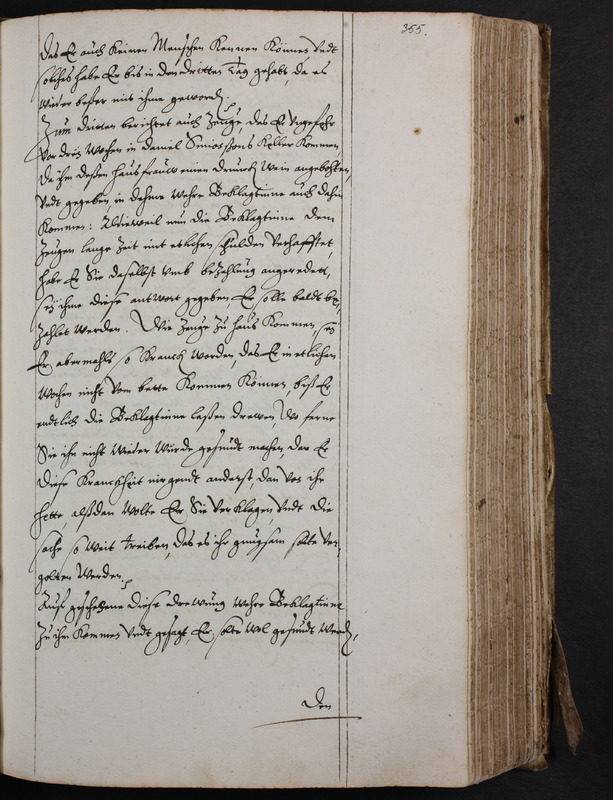 355.
das Er auch keinen Menschen kennen können, vndt
solches habe Er bis in den dritten Tag gehabt, da es
wieder beßer mit ihme geword.
Zum dritten berichtet auch Zeuge, das Er vngefehr
vor dreÿ Wochen in Daniel Keller kommen
da ihm deßen hausfrauw einen drunck Wein angebohten,
vndt gegeben, in dehme wehre Beklagtinne auch dahin
kommen: Alldieweil nun die Beklagtinne dem
Zeugen lange Zeit mit etlichen schulden verhafftet,
habe Er Sie daselbst vmb bezahlung angeredett,
seÿ ihme diese antwort gegeben Er solle baldt be-
zahlet werden. Wie Zeuge zu haus kommen, seÿ
Er abermahls so kranck worden, das Er in etlichen
Wochen nicht vom bette kommen können, biß Er
endtlich die Beklagtinne laßen drewen, wo ferne
Sie ihn nicht wieder würde gesundt machen dan Er
diese Kranckheit nirgendt anderst, dan von ihr
hette, alßdan wolte Er Sie verklagen, vndt die
sache so weit treiben, das es ihr gnugsam solte ver-
golten werden.
Auf geschehene diese drewung wehre Beklagtinne
zu ihm kommen vndt gesagt, Er solte wol gesundt werd,
Den